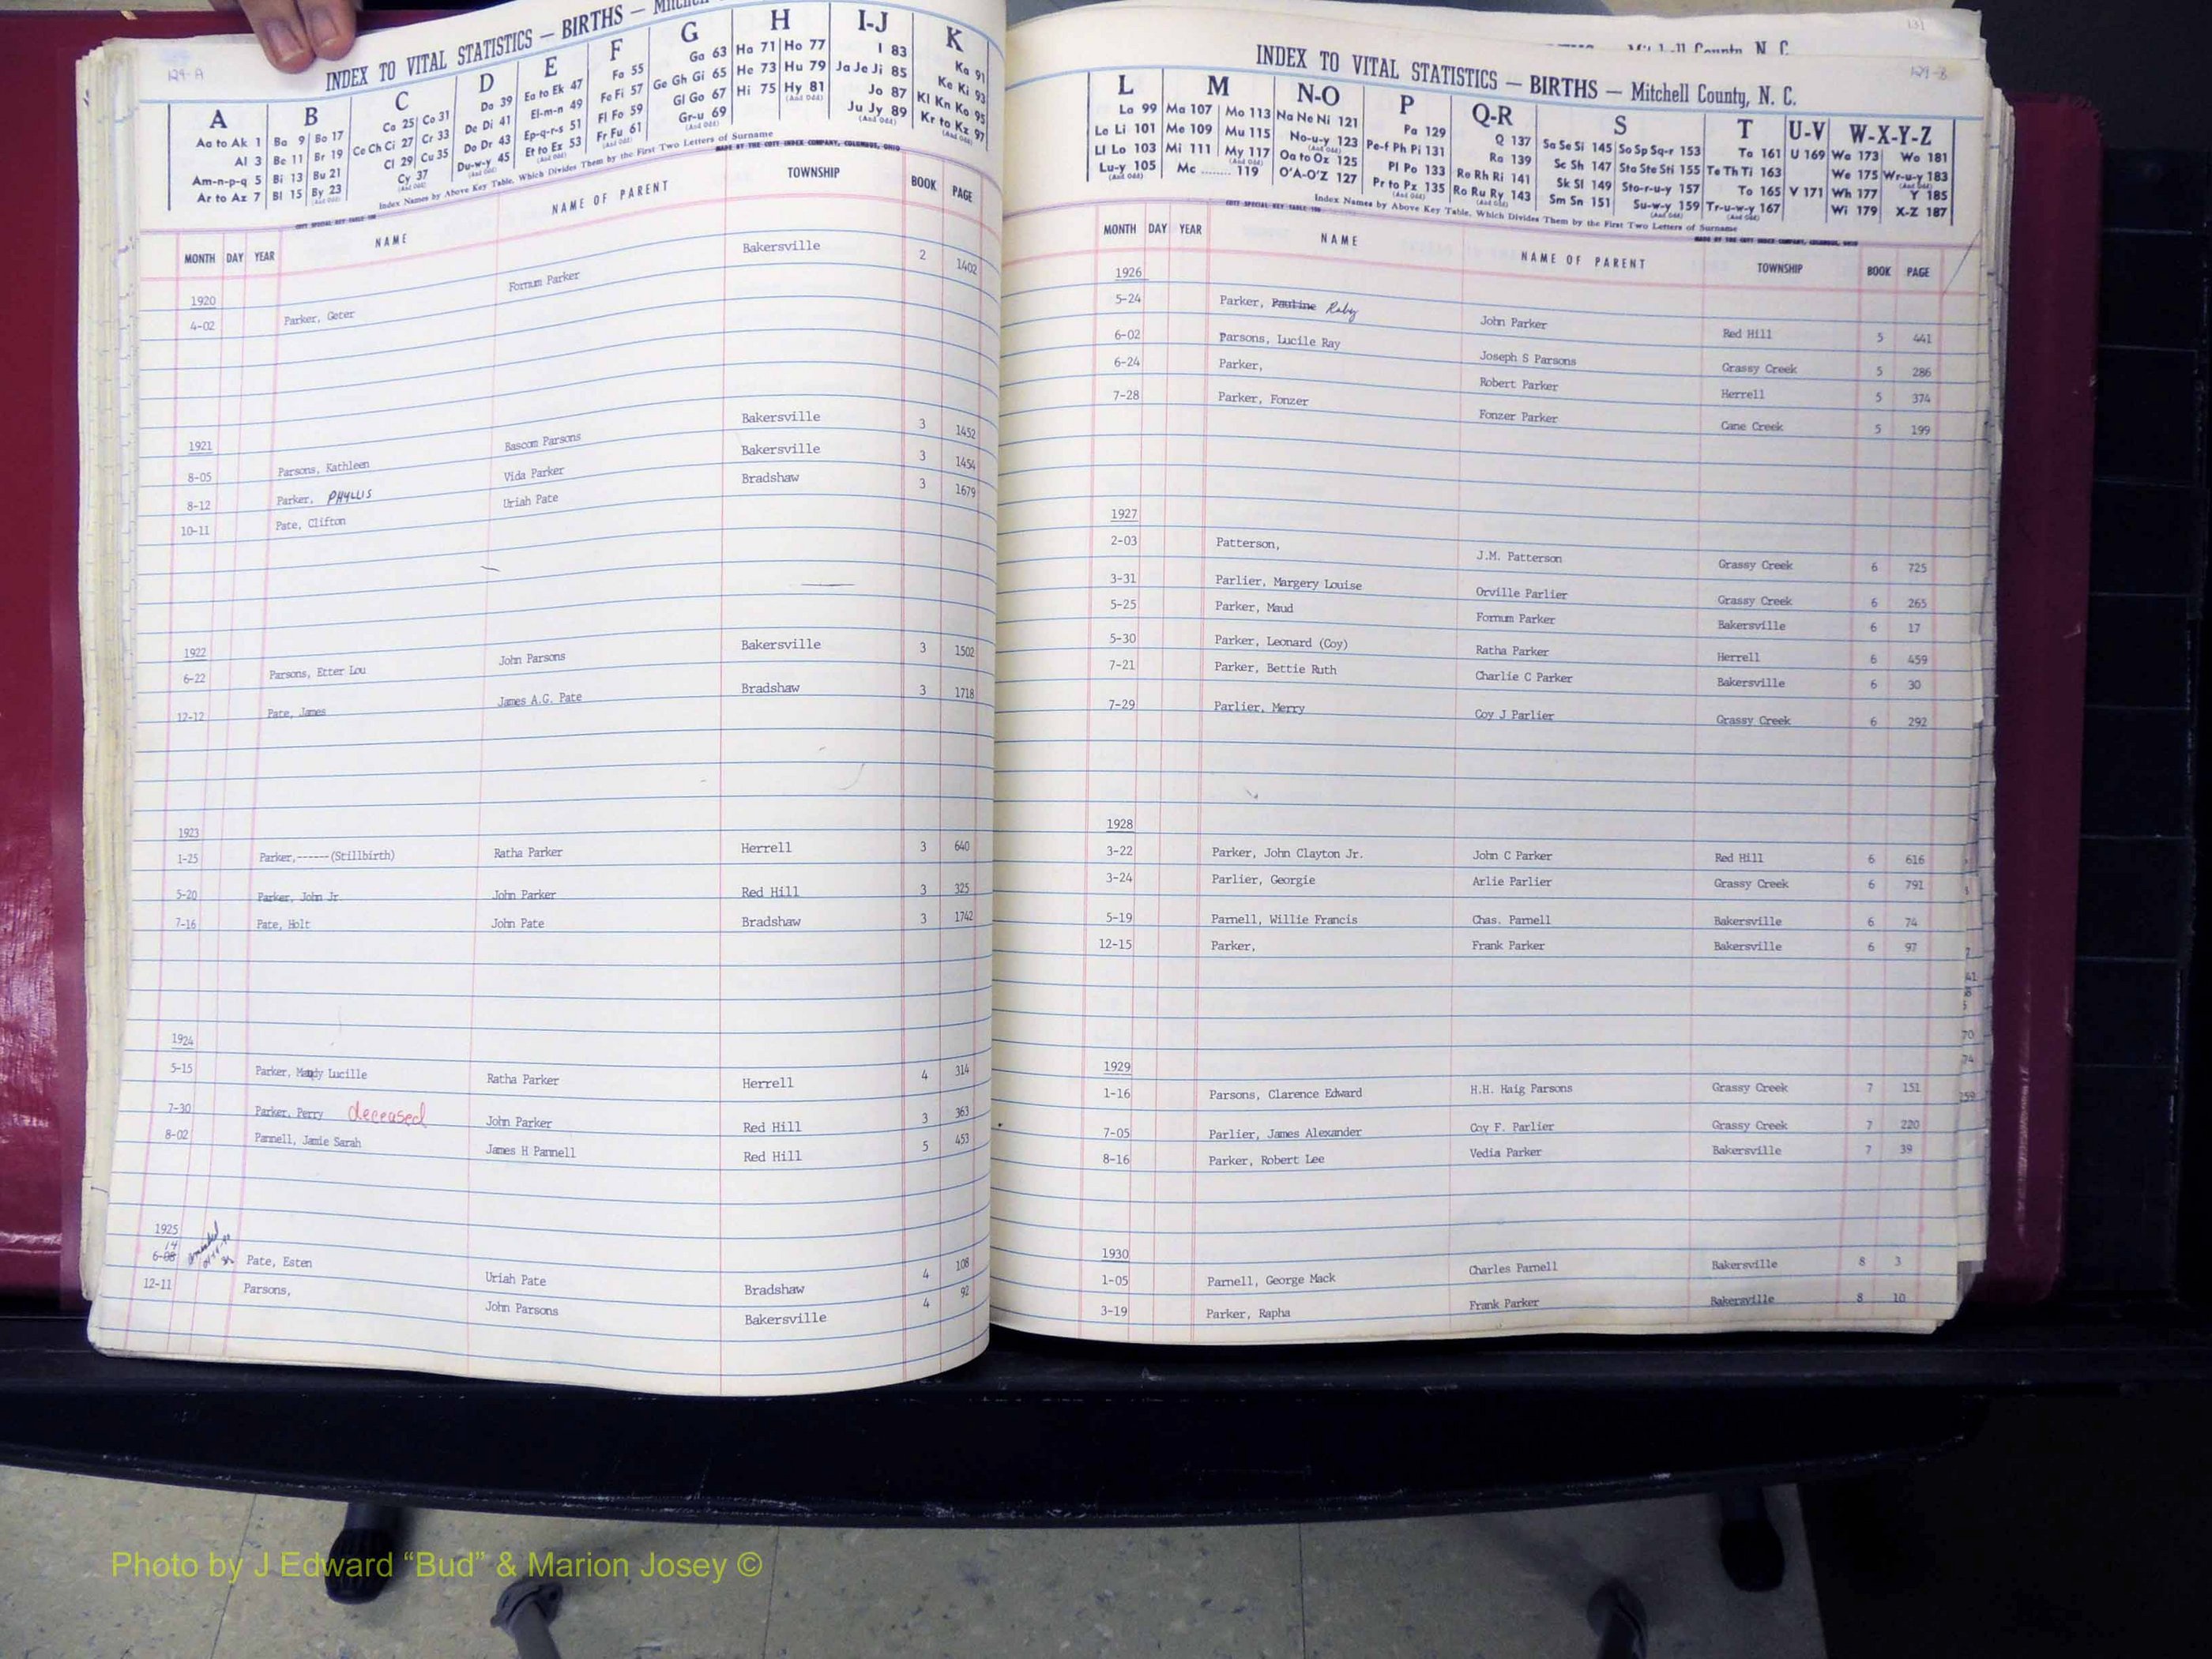 129-A
INDEX TO VITAL STATISTICS — BIRTHS — Mitchell
A B C D E F G H I-J K
Aa to Ak 1 Ba 9 Bo 17 Ca 25 Co 31 Da 39 Ea to Ek 47 Fa 55 Ga 63 Ha 71 Ho 77 I 83 Ka 91
Al 3 Be 11 Br 19 Ce Ch Ci 27 Cr 33 De Di 41 El-m-n 49 Fe Fi 57 Ge Gh Gi 65 He 73 Hu 79 Ja Je Ji 85 Ke Ki 93
Am-n-p-q 5 Bi 13 Bu 21 Cl 29 Cu 35 Do Dr 43 Ep-q-r-s 51 Fl Fo 59 Gl Go 67 Hi 75 Hy 81 Jo 87 Kl Kn Ko 95
Ar to Az 7 Bl 15 By 23 Cy 37 Du-w-y 45 Et to Ez 53 Fr Fu 61 Gr-u 69 Ju Jy 89 Kr to Kz 97
Index Names by Above Key Table, Which Divides Them by the First Two Letters of Surname
MADE BY THE COTT INDEX COMPANY, COLUMBUS, OHIO
MONTH DAY YEAR NAME NAME OF PARENT TOWNSHIP BOOK PAGE
1920
4-02 Parker, Geter Fornum Parker Bakersville 2 1402
1921
8-05 Parsons, Kathleen Bascom Parsons Bakersville 3 1452
8-12 Parker, PHYLLIS Vida Parker Bakersville 3 1454
10-11 Pate, Clifton Uriah Pate Bradshaw 3 1679
1922
6-22 Parsons, Etter Lou John Parsons Bakersville 3 1502
12-12 Pate, James James A.G. Pate Bradshaw 3 1718
1923
1-25 Parker,------(Stillbirth) Ratha Parker Herrell 3 640
5-20 Parker, John Jr. John Parker Red Hill 3 325
7-16 Pate, Holt John Pate Bradshaw 3 1742
1924
5-15 Parker, Mandy Lucille Ratha Parker Herrell 4 314
7-30 Parker, Perry deceased John Parker Red Hill 3 363
8-02 Pannell, Jamie Sarah James H Pannell Red Hill 5 453
1925
14
6-08 amended Pate, Esten Uriah Pate Bradshaw 4 108
12-11 Parsons, John Parsons Bakersville 4 92
131
Mitchell County, N. C.
129-B
INDEX TO VITAL STATISTICS — BIRTHS — Mitchell County, N. C.
L M N-O P Q-R S T U-V W-X-Y-Z
La 99 Ma 107 Mo 113 Na Ne Ni 121 Pa 129 Q 137 Sa Se Si 145 So Sp Sq-r 153 Ta 161 U 169 Wa 173 Wo 181
Le Li 101 Me 109 Mu 115 No-u-y 123 Pe-f Ph Pi 131 Ra 139 Sc Sh 147 Sta Ste Sti 155 Te Th Ti 163 We 175 Wr-u-y 183
Ll Lo 103 Mi 111 My 117 Oa to Oz 125 Pl Po 133 Re Rh Ri 141 Sk Sl 149 Sto-r-u-y 157 To 165 V 171 Wh 177 Y 185
Lu-y 105 Mc ........ 119 O'A-O'Z 127 Pr to Pz 135 Ro Ru Ry 143 Sm Sn 151 Su-w-y 159 Tr-u-w-y 167 Wi 179 X-Z 187
Index Names by Above Key Table, Which Divides Them by the First Two Letters of Surname
MADE BY THE COTT INDEX COMPANY, COLUMBUS, OHIO
MONTH DAY YEAR NAME NAME OF PARENT TOWNSHIP BOOK PAGE
1926
5-24 Parker, Pauline Ruby John Parker Red Hill 5 441
6-02 Parsons, Lucile Ray Joseph S Parsons Grassy Creek 5 286
6-24 Parker, Robert Parker Herrell 5 374
7-28 Parker, Fonzer Fonzer Parker Cane Creek 5 199
1927
2-03 Patterson, J.M. Patterson Grassy Creek 6 725
3-31 Parlier, Margery Louise Orville Parlier Grassy Creek 6 265
5-25 Parker, Maud Fornum Parker Bakersville 6 17
5-30 Parker, Leonard (Coy) Ratha Parker Herrell 6 459
7-21 Parker, Bettie Ruth Charlie C Parker Bakersville 6 30
7-29 Parlier, Merry Coy J Parlier Grassy Creek 6 292
1928
3-22 Parker, John Clayton Jr. John C Parker Red Hill 6 616
3-24 Parlier, Georgie Arlie Parlier Grassy Creek 6 791
5-19 Parnell, Willie Francis Chas. Parnell Bakersville 6 74
12-15 Parker, Frank Parker Bakersville 6 97
1929
1-16 Parsons, Clarence Edward H.H. Haig Parsons Grassy Creek 7 151
7-05 Parlier, James Alexander Coy F. Parlier Grassy Creek 7 220
8-16 Parker, Robert Lee Vedia Parker Bakersville 7 39
1930
1-05 Parnell, George Mack Charles Parnell Bakersville 8 3
3-19 Parker, Rapha Frank Parker Bakersville 8 10
Photo by J Edward “Bud” & Marion Josey ©